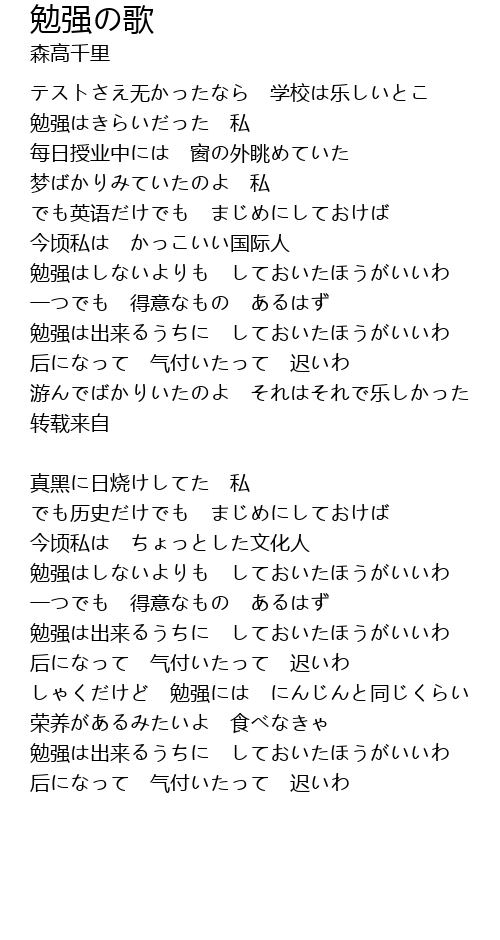 勉强の歌
森高千里
テストさえ无かったなら　学校は乐しいとこ
勉强はきらいだった　私
每日授业中には　窗の外眺めていた
梦ばかりみていたのよ　私
でも英语だけでも　まじめにしておけば
今顷私は　かっこいい国际人
勉强はしないよりも　しておいたほうがいいわ
一つでも　得意なもの　あるはず
勉强は出来るうちに　しておいたほうがいいわ
后になって　气付いたって　迟いわ
游んでばかりいたのよ　それはそれで乐しかった
转载来自

真黑に日烧けしてた　私
でも历史だけでも　まじめにしておけば
今顷私は　ちょっとした文化人
勉强はしないよりも　しておいたほうがいいわ
一つでも　得意なもの　あるはず
勉强は出来るうちに　しておいたほうがいいわ
后になって　气付いたって　迟いわ
しゃくだけど　勉强には　にんじんと同じくらい
荣养があるみたいよ　食べなきゃ
勉强は出来るうちに　しておいたほうがいいわ
后になって　气付いたって　迟いわ